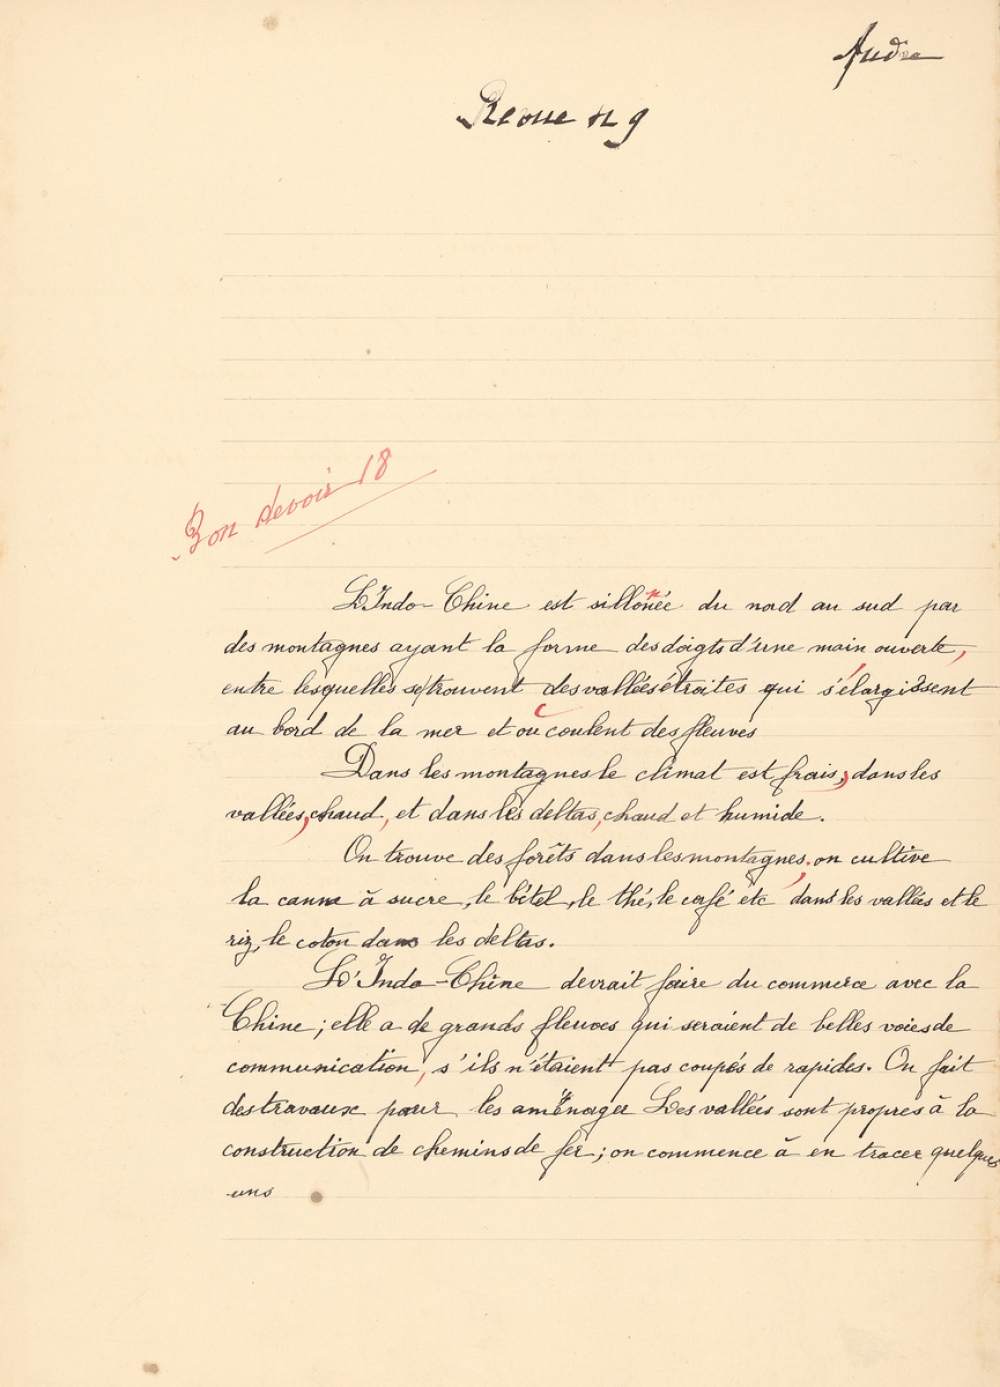 Andre
Revue n 9
Bon devoir 18
L'Indo-Chine est sillonée du nord au sud par
des montagnes ayant la forme des doigts d'une main ouverte,
entre lesquelles se trouvent des vallées étroites qui s'élargissent
au bord de la mer et où coulent des fleuves
Dans les montagnes le climat est frais, dans les
vallées, chaud, et dans les deltas, chaud et humide.
On trouve des forêts dans les montagnes; on cultive
la canne à sucre, le bétel, le thé, le café etc, dans les vallées et le
riz, le coton dans les deltas.
L'Indo-Chine devrait faire du commerce avec la
Chine; elle a de grands fleuves qui seraient de belles voies de
communication, s'ils n'étaient pas coupés de rapides. On fait
des travaux pour les aménager Les vallées sont propres à la
construction de chemins de fer; on commence à en tracer quelques
uns